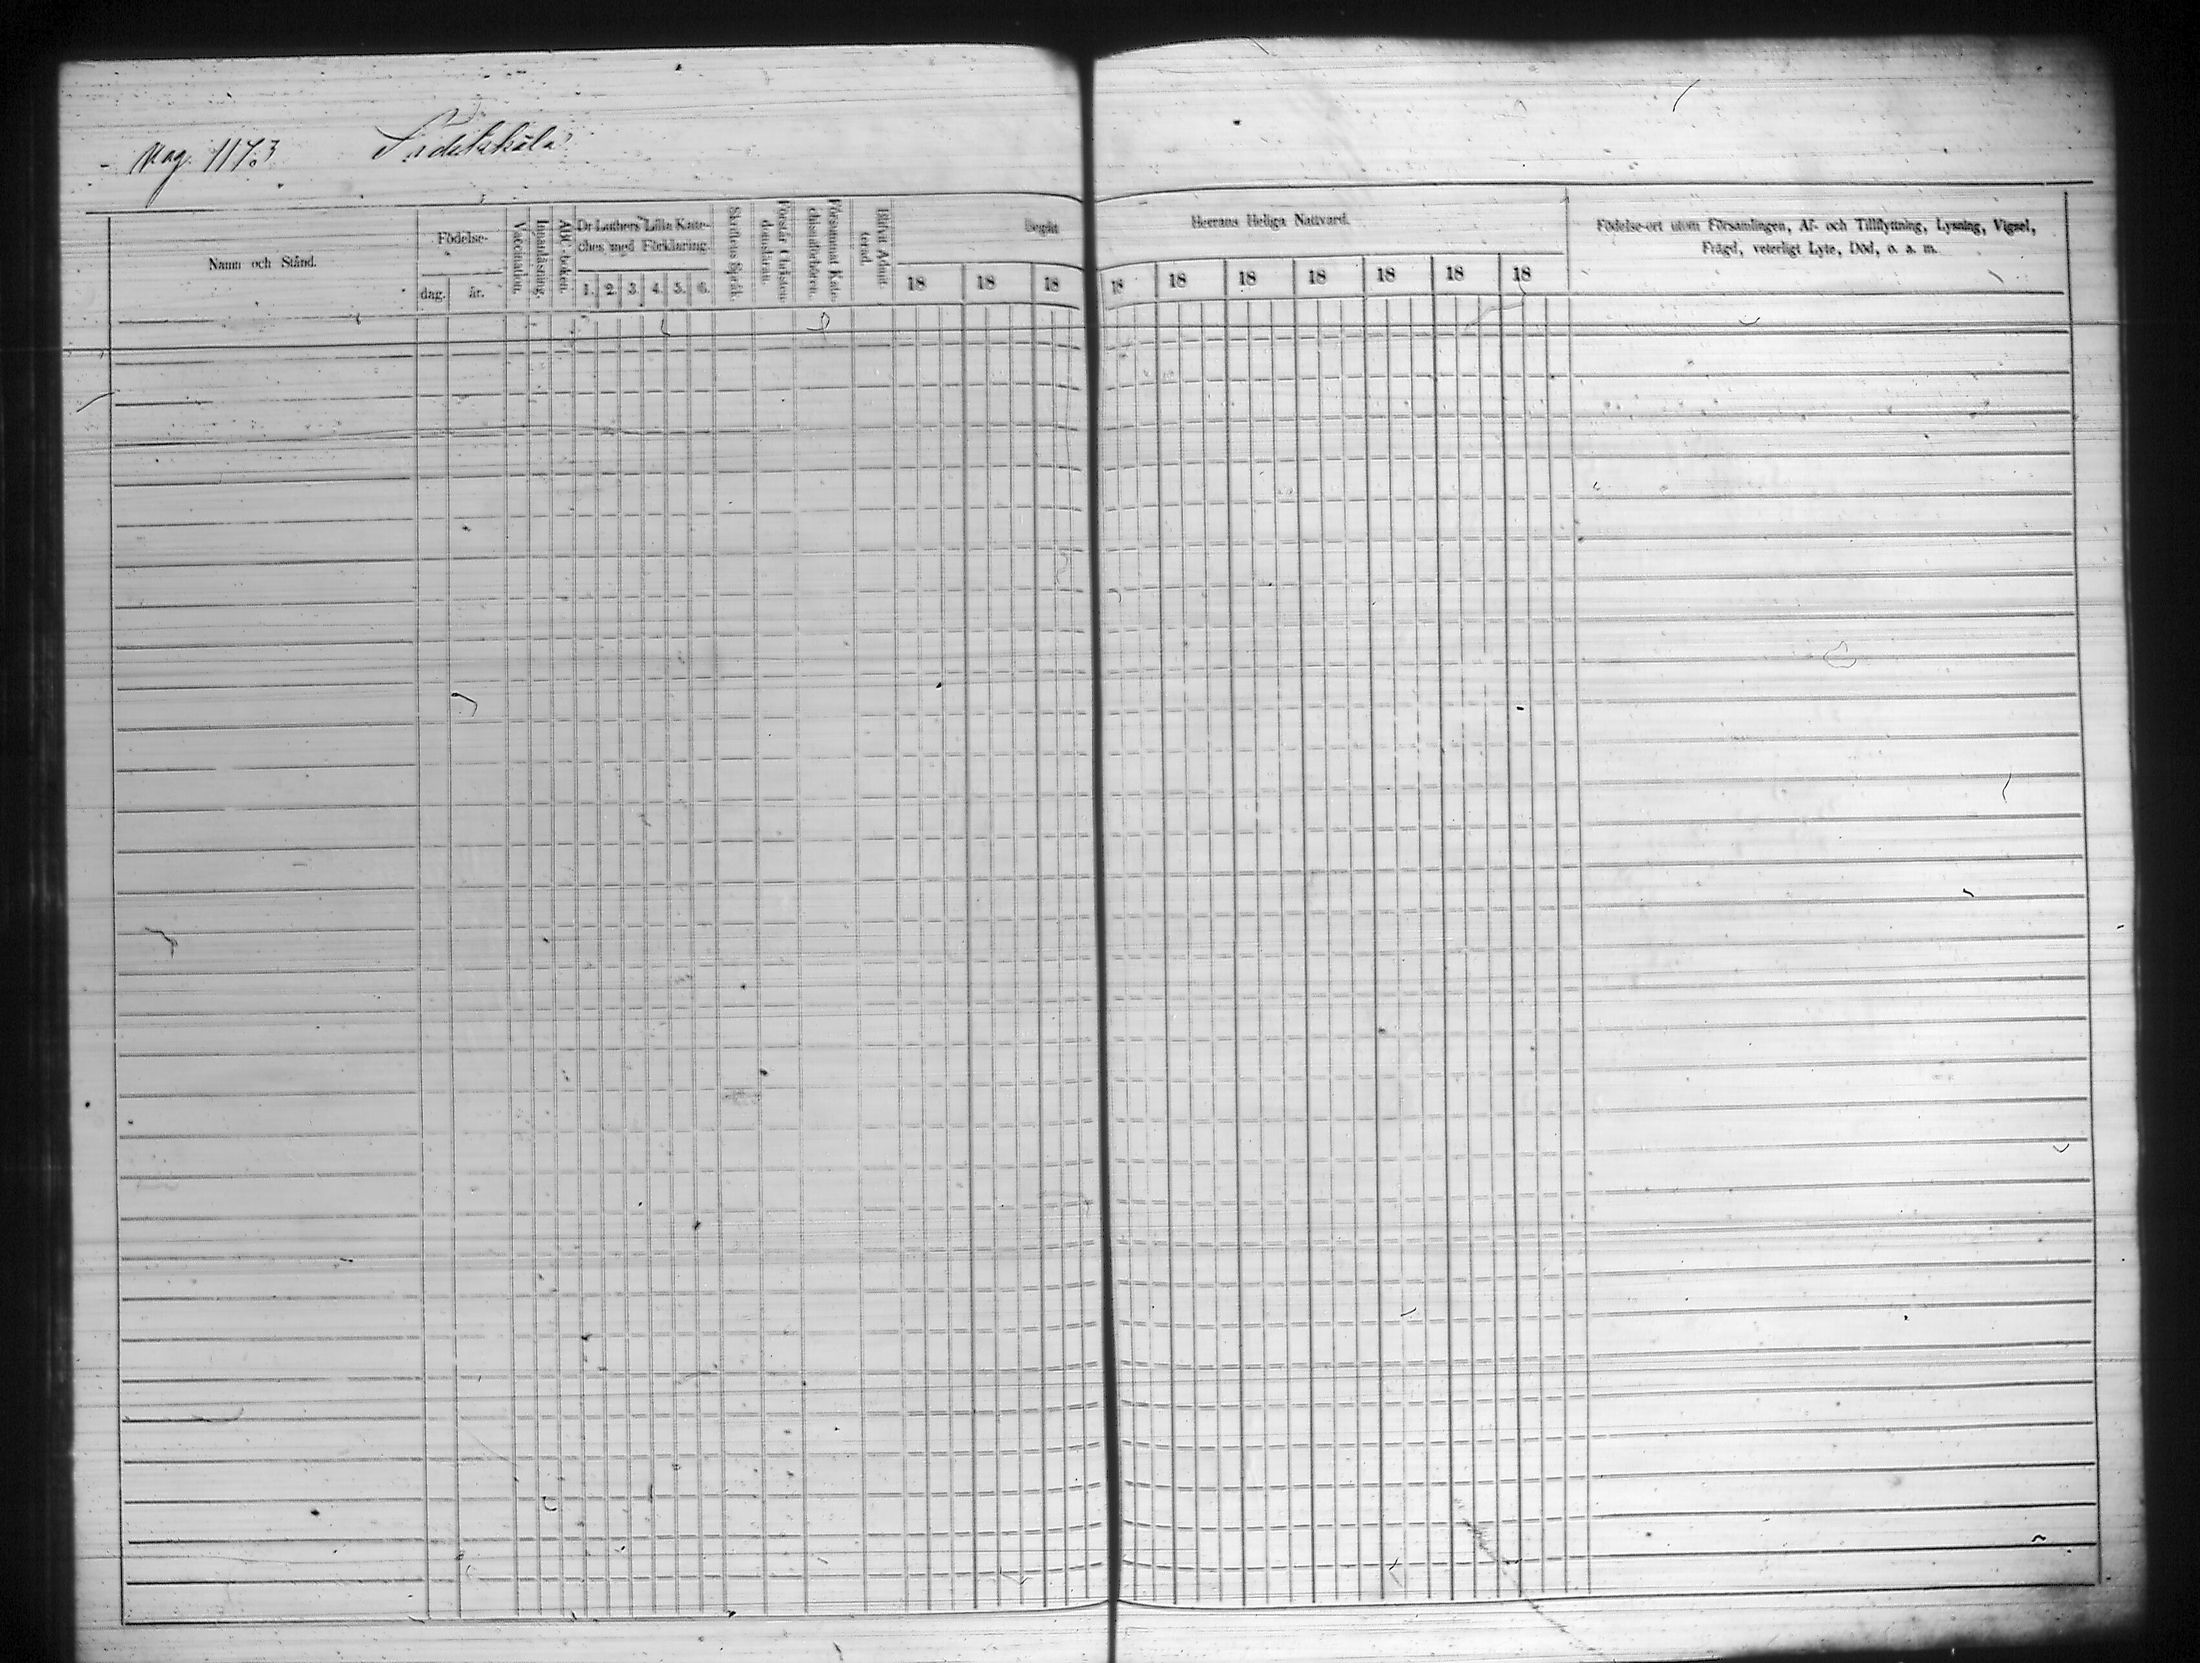 Pag. 1173
Namn och Stånd.
Födelse-
dag.
år.
Vaccination.
Innanläsning.
ABC-boken.
Dr Luthers Lilla Kate-
ches med Förklaring.
1. 2. 3. 4. 5. 6.
Skriftens Språk.
Förstår Christen-
domsläran.
Försummat Kate-
chismiförhören.
Blifvit Admit-
terad.
Begått
18 18 18
Herrans Heliga Nattvard.
18 18 18 18 18 18 18
Födelse-ort utom Församlingen, Af- och Tillflyttning, Lysning, Vigsel,
Frägd, veterligt Lyte, Död, o. a. m.